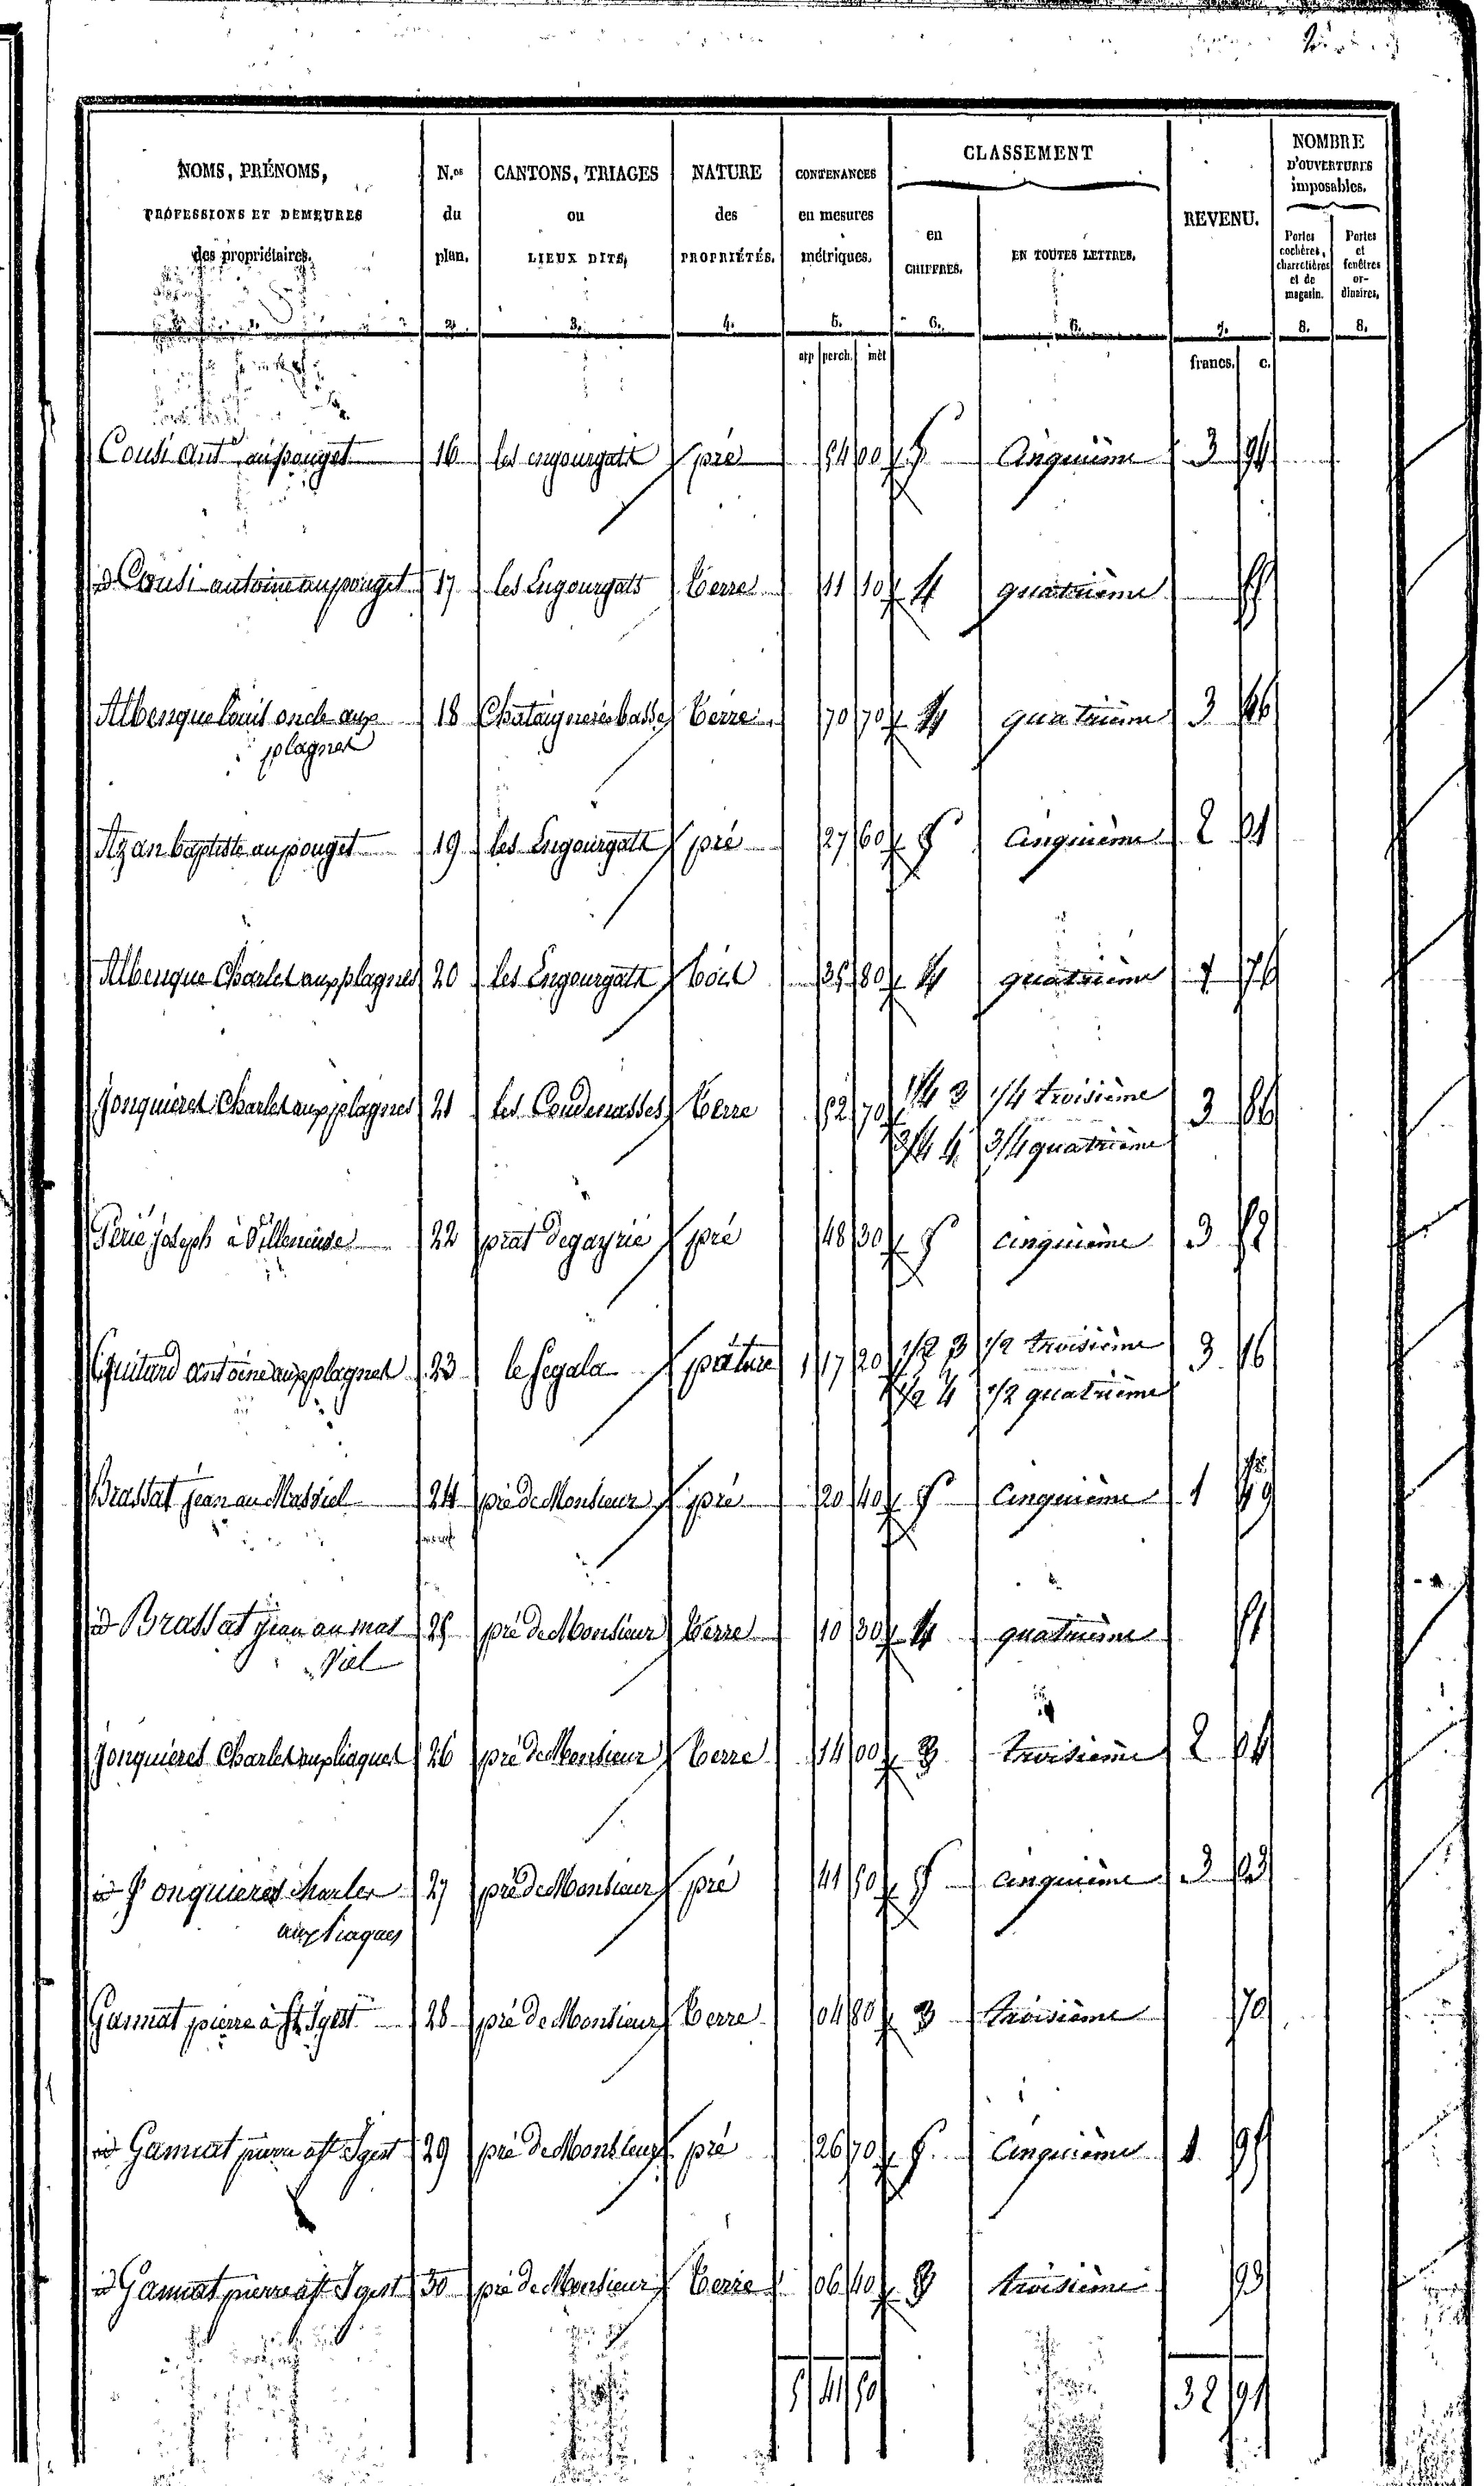 NOMS, PRÉNOMS, PROFESSIONS ET DEMEURES des propriétaires. 1.
N.os du plan. 2.
CANTONS, TRIAGES ou LIEUX DITS, 3.
NATURE des PROPRIÉTÉS. 4.
CONTENANCES en mesures métriques. 5.
CLASSEMENT
en CHIFFRES. 6.
EN TOUTES LETTRES. 6.
REVENU. 7.
NOMBRE D'OUVERTURES imposables.
Portes cochères, charretières et de magasin. 8.
Portes et fenêtres ordinaires, 8.
arp perch. mèt francs. c.
Cousi ant.e au pouget 16 les engourgats pré 54 00 5 Cinquième 3 94
id Cousi antoine au pouget 17 les Engourgats Terre 11 10 4 quatrième 55
Albenque louis oncle aux 18 Chataigneres basses Terre 70 70 4 quatrième 3 46
plagnes
Azan baptiste au pouget 19 les Engourgats pré 27 60 5 Cinquième 2 01
Albenque Charles aux plagnes 20 les Engourgats bois 35 80 4 quatrième 1 76
Jonquieres Charles aux plagnes 21 les Condenasses Terre 52 70 1/4 3 1/4 troisième 3 86
3/4 4 3/4 quatrième
Perié joseph à Villeneuve 22 prat degayrie pré 48 30 5 cinquième 3 52
Guitard antoine aux plagnes 23 le segala pâture 1 17 20 1/2 3 1/2 troisième 3 16
1/2 4 1/2 quatrième
Brassat jean au Masviel 24 pré de Monsieur pré 20 40 5 Cinquième 1 49
id Brassat jean au mas 25 pré de Monsieur Terre 10 30 4 quatrième 51
Viel
Jonquieres Charles aux liaques 26 pré de Monsieur Terre 14 00 3 troisième 2 04
id Jonquieres charles 27 pré de Monsieur pré 41 50 5 cinquième 3 03
aux liaques
Gamat pierre à St Igest 28 pré de Monsieur Terre 04 80 3 troisième 70
id Gamat pierre a St Igest 29 pré de Monsieur pré 26 70 5 Cinquième 1 95
id Gamat pierre a St Igest 30 pré de Monsieur Terre 06 40 3 troisième 93
5 41 50 32 91